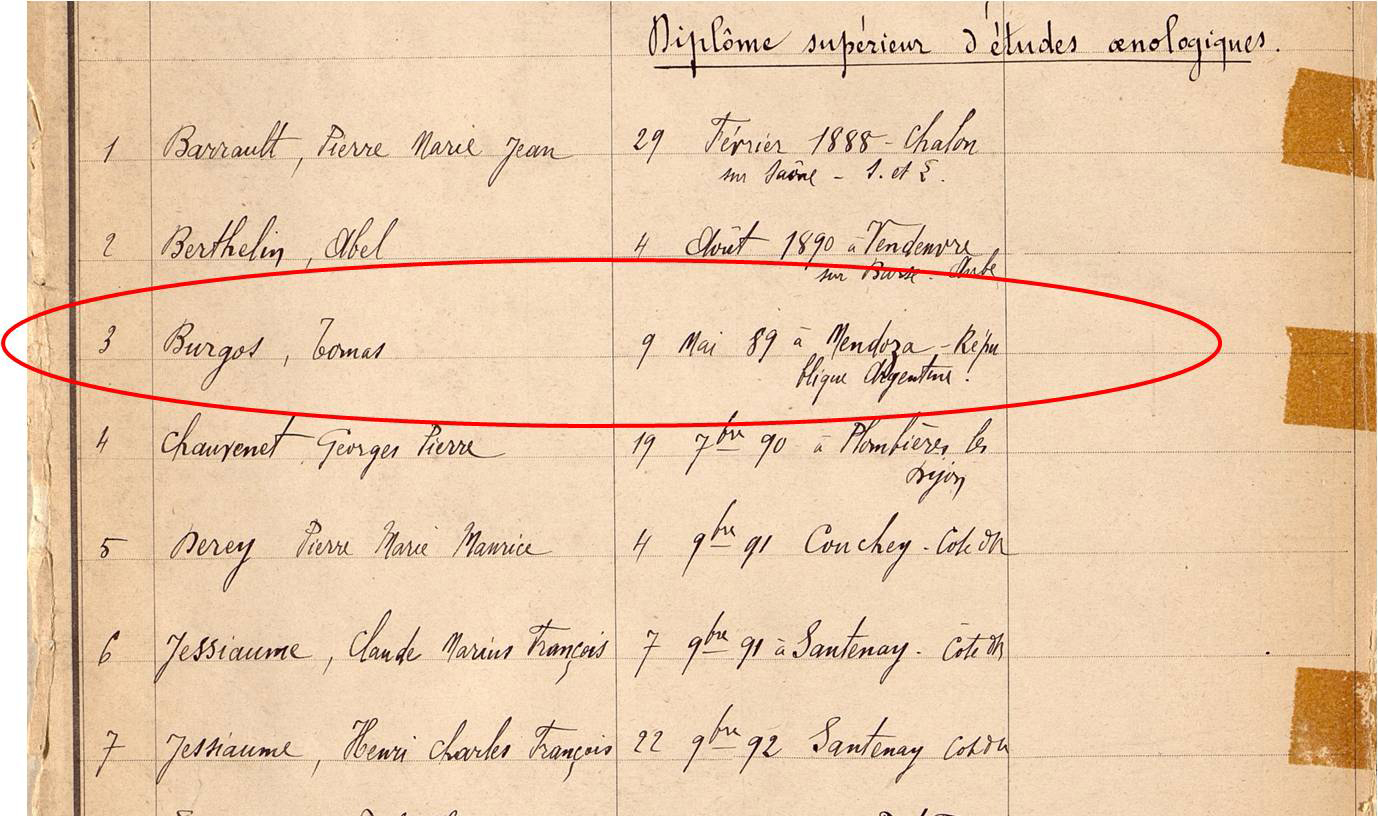 Diplôme supérieur d'études œnologiques.
1 Barrault, Pierre Marie Jean 29 Février 1888 - Chalon
sur Saône - S. et L.
2 Berthelin, Abel 4 Août 1890 à Vendeuvre
sur Barse. Aube
3 Burgos, Tomas 9 Mai 89 à Mendoza - Répu
blique Argentine.
4 Chauvenet Georges Pierre 19 7bre 90 à Plombières les
Dijon
5 Derey Pierre Marie Maurice 4 9bre 91 Couchey - Cote d'Or
6 Jessiaume, Claude Marius François 7 9bre 91 à Santenay. Côte d'Or
7 Jessiaume, Henri Charles François 22 9bre 92 Santenay Cote d'Or